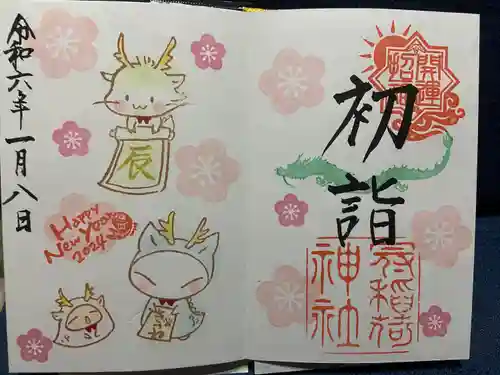 開運
招福
初詣
稲荷
神社
辰
Happy
New Year
2024
令和六年一月八日